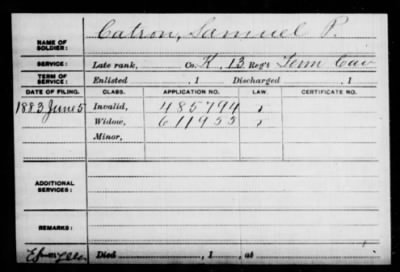 NAME OF SOLDIER: Catron, Samuel P.
SERVICE: Late rank, Co. K, 13 Reg't Tenn Cav
TERM OF SERVICE: Enlisted , 1 Discharged , 1
DATE OF FILING. CLASS. APPLICATION NO. LAW. CERTIFICATE NO.
1883 June 5 Invalid, 485794
Widow, 611933
Minor,
ADDITIONAL SERVICES:
REMARKS:
Died , 1 , at